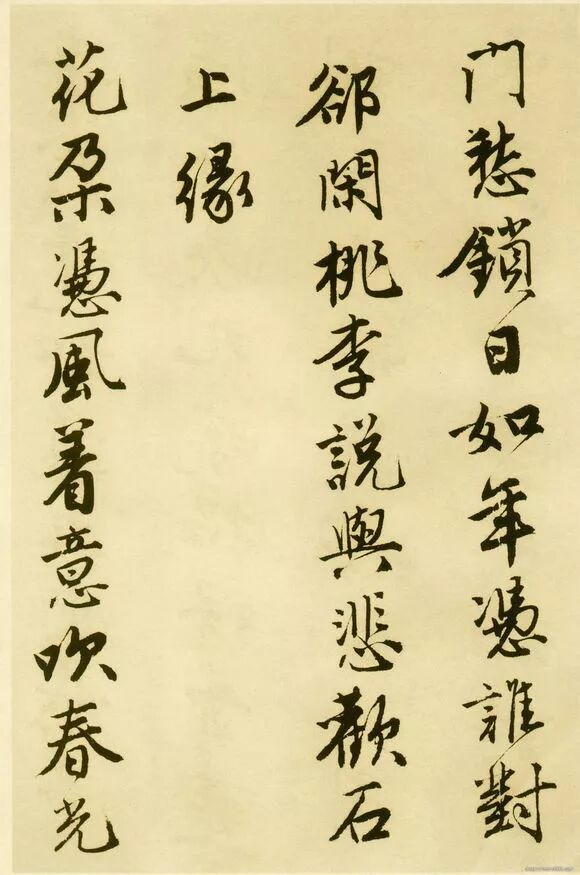 門愁鎖日如年憑誰對
郤閑桃李説與悲歡石
上緣
花朵憑風着意吹春光